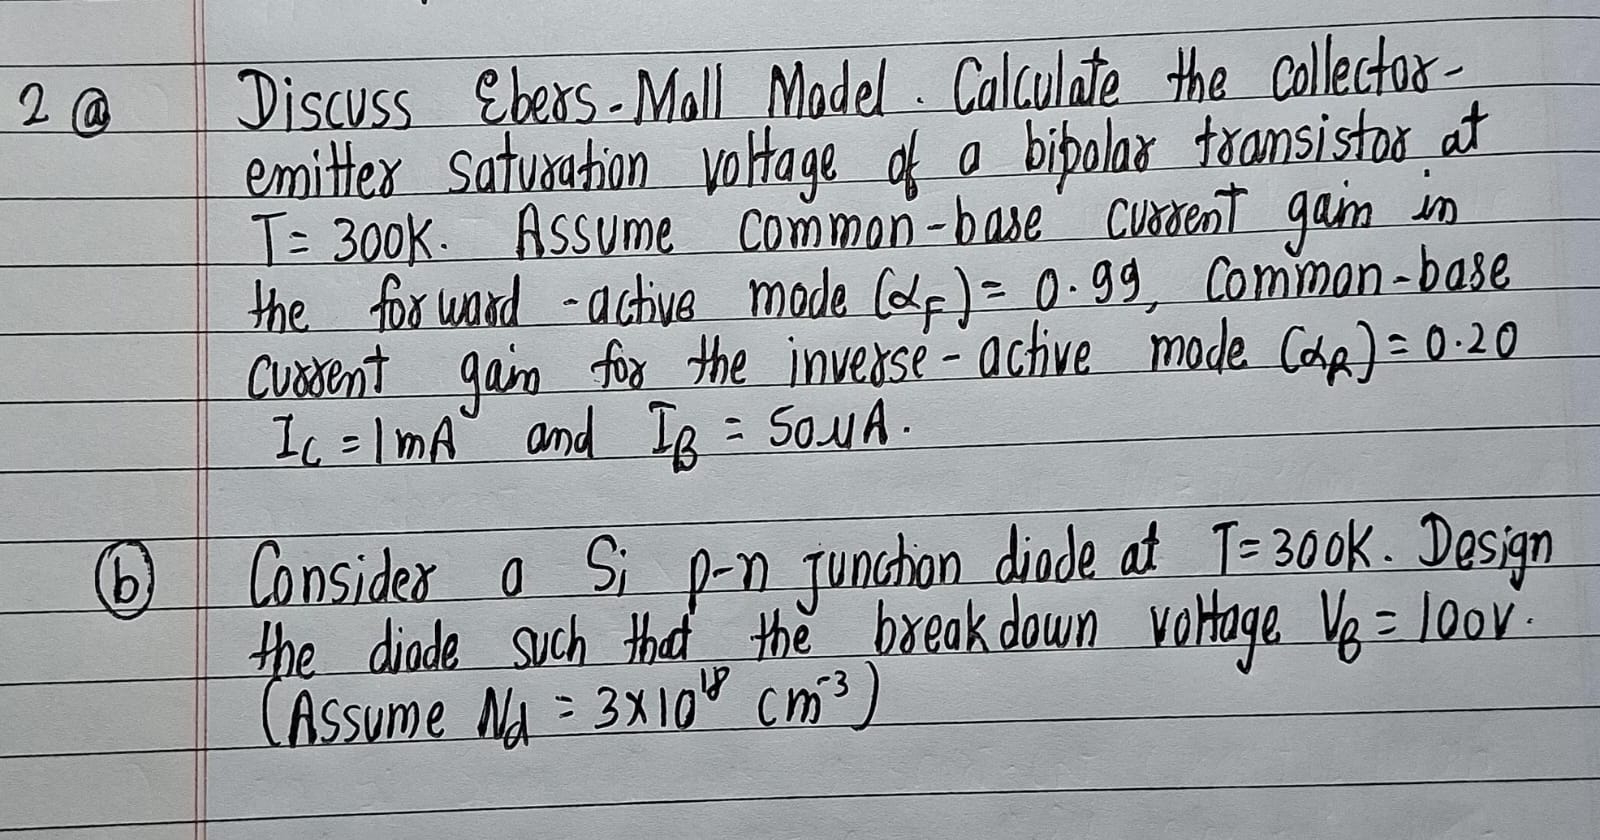 2 (a) Discuss Ebers-Moll Model. Calculate the collector-
emitter saturation voltage of a bipolar transistor at
T = 300K. Assume common-base current gain in
the forward-active mode (αF) = 0.99, common-base
current gain for the inverse-active mode (αR) = 0.20
IC = 1mA and IB = 50μA.
(b) Consider a Si p-n junction diode at T=300K. Design
the diode such that the breakdown voltage VB = 100V.
(Assume Nd = 3×10¹⁸ cm⁻³)